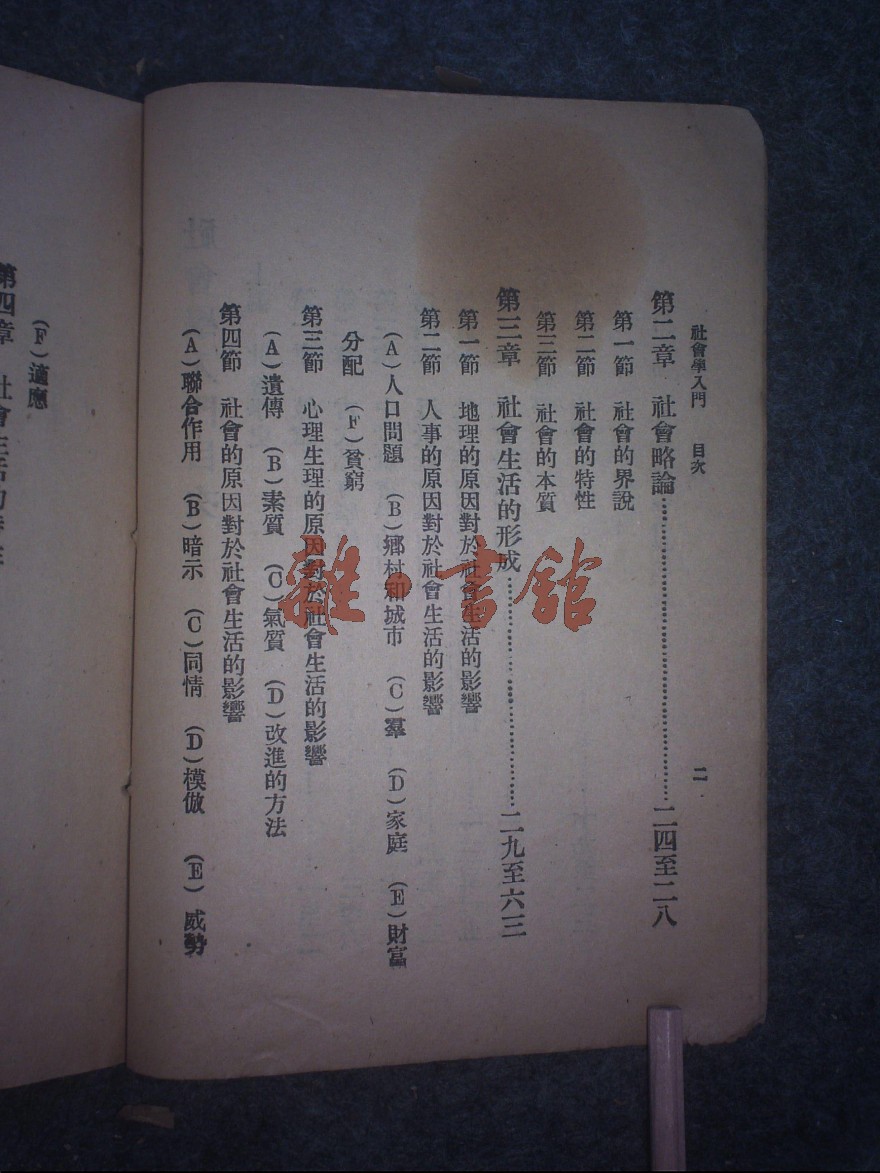 社會學入門 目次 二
第二章 社會略論……二四至二八
第一節 社會的界說
第二節 社會的特性
第三節 社會的本質
第三章 社會生活的形成……二九至六三
第一節 地理的原因對於社會生活的影響
第二節 人事的原因對於社會生活的影響
(A)人口問題 (B)鄉村和城市 (C)羣 (D)家庭 (E)財富
分配 (F)貧窮
第三節 心理生理的原因對於社會生活的影響
(A)遺傳 (B)素質 (C)氣質 (D)改進的方法
第四節 社會的原因對於社會生活的影響
(A)聯合作用 (B)暗示 (C)同情 (D)模倣 (E)威勢
(F)適應
第四章 社會生活的
雜·書館